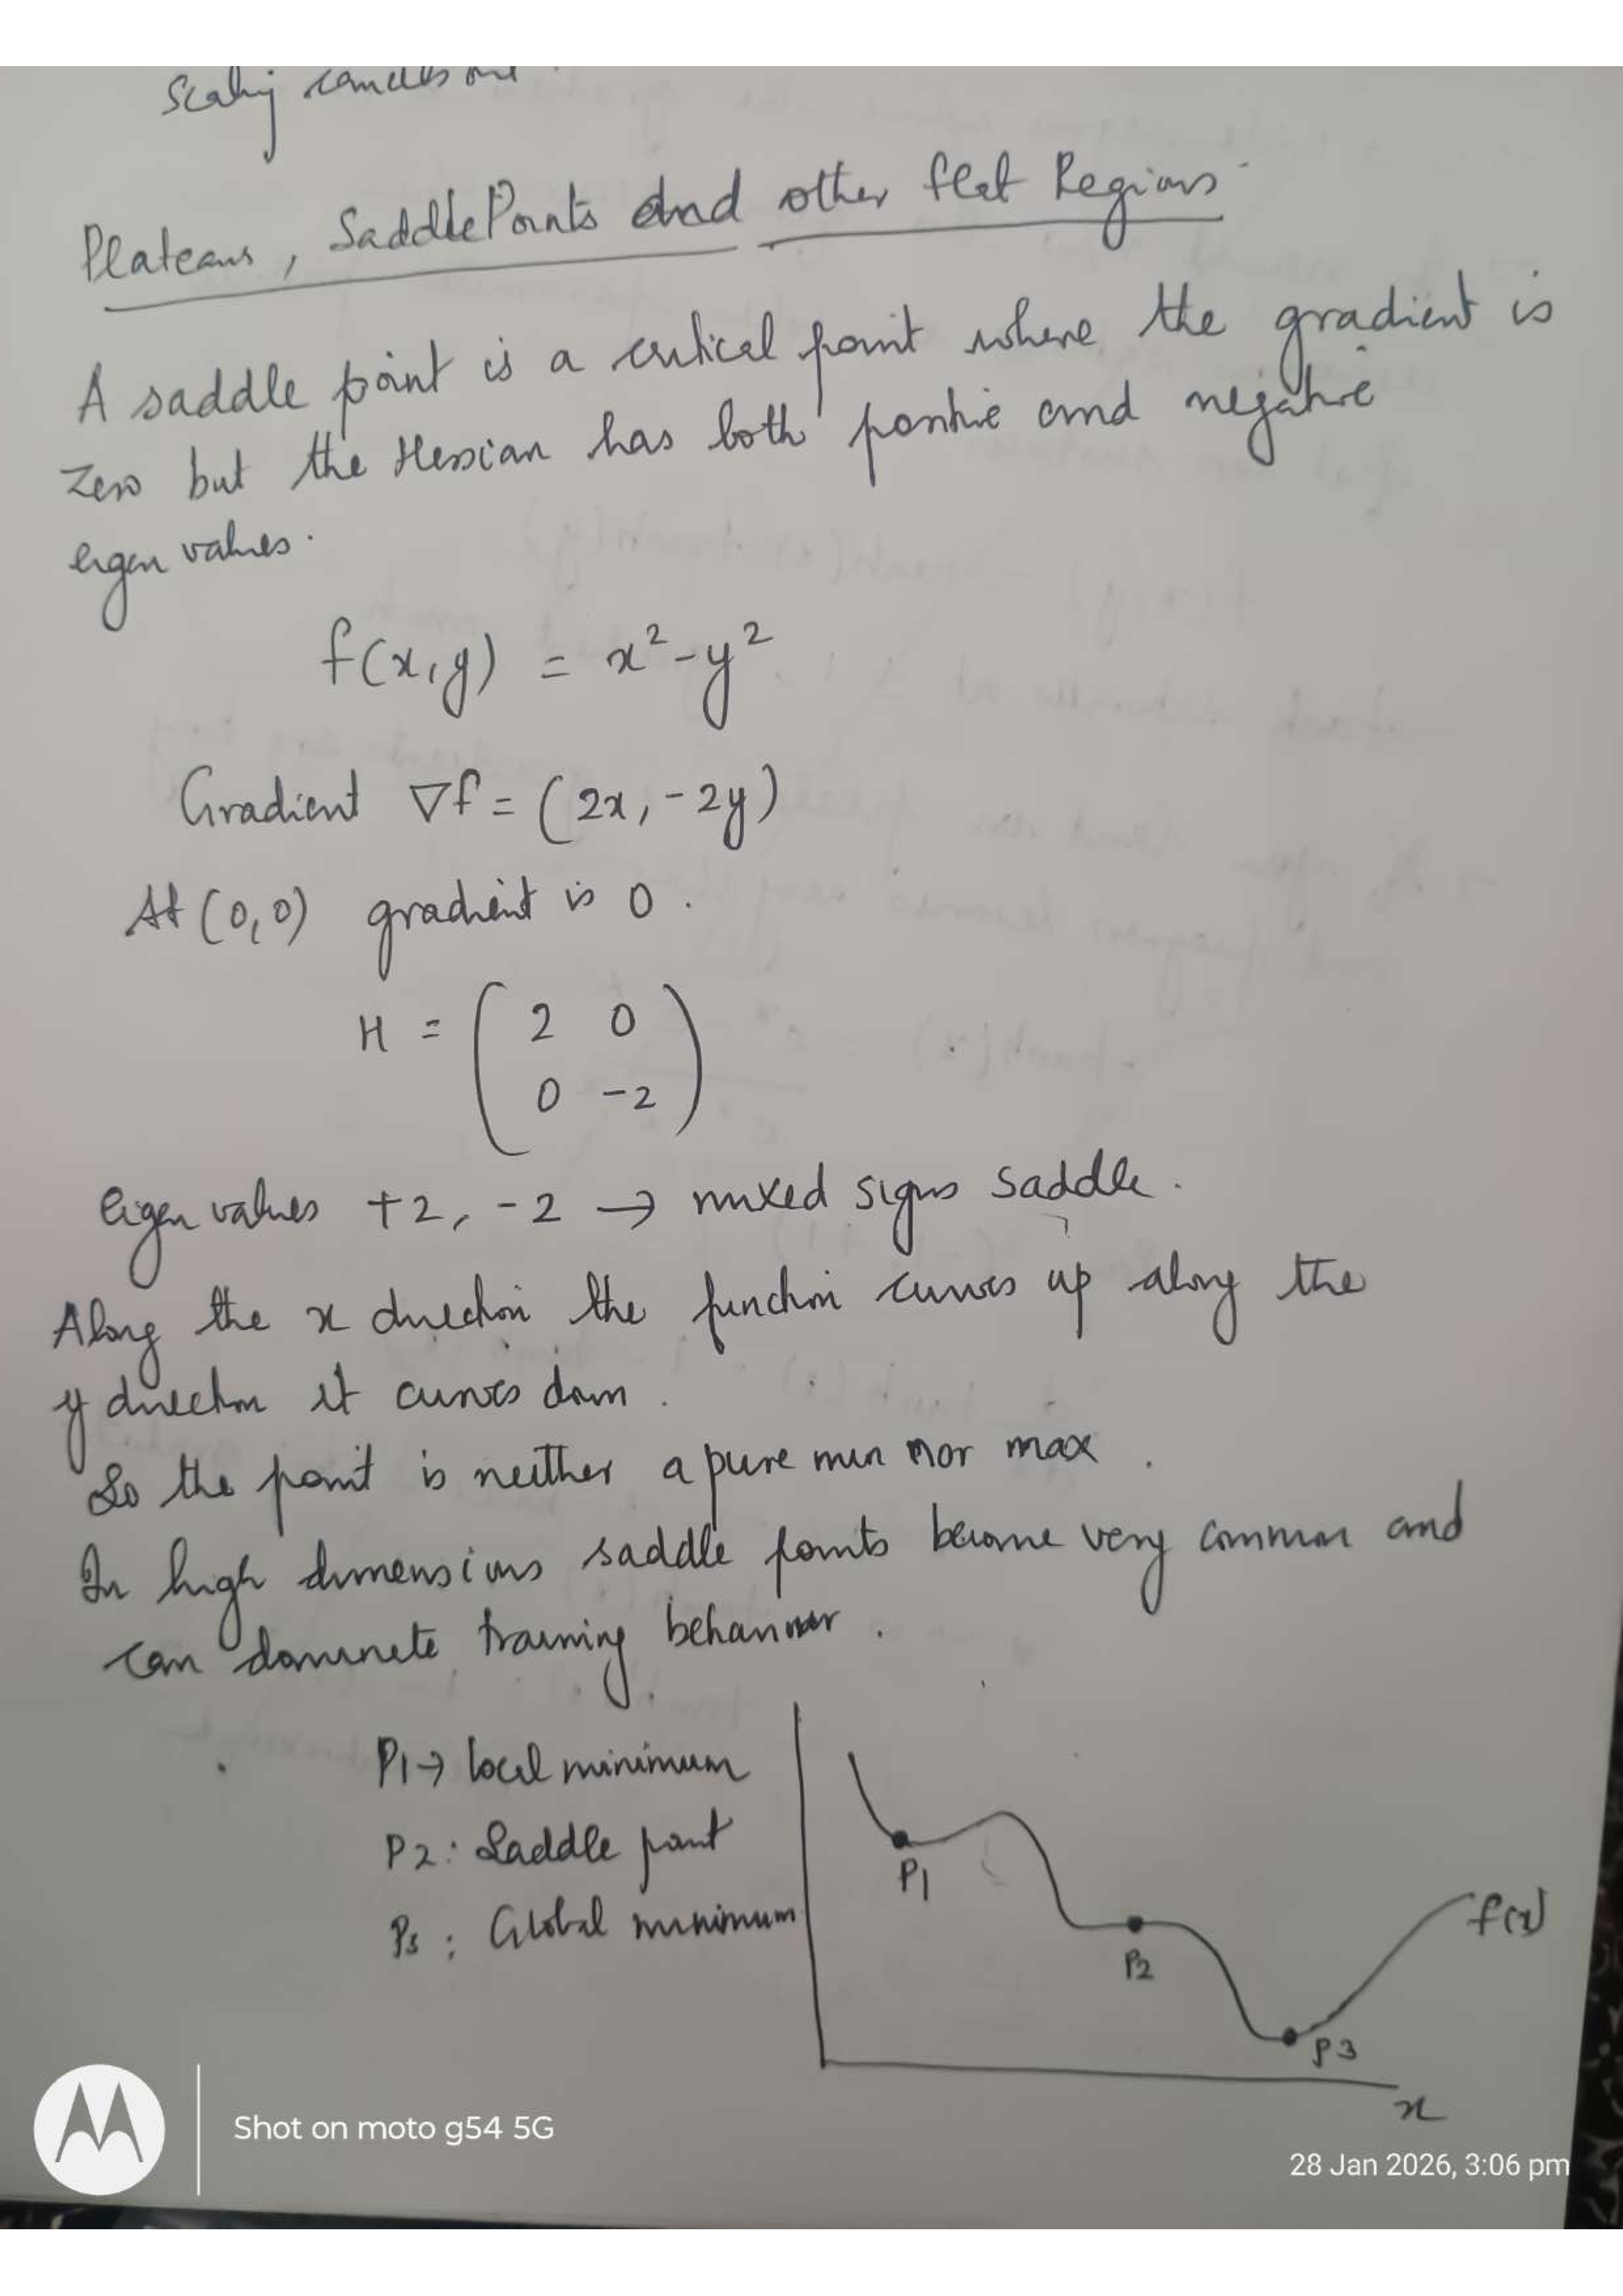 Plateaus, Saddle Points and other flat Regions
A saddle point is a critical point where the gradient is
zero but the Hessian has both positive and negative
eigen values.
f(x,y) = x²-y²
Gradient ∇f = (2x, -2y)
At (0,0) gradient is 0.
H = ( 2 0
0 -2 )
Eigen values +2, -2 → mixed signs saddle.
Along the x direction the function curves up along the
y direction it curves down.
So the point is neither a pure min nor max.
In high dimensions saddle points become very common and
can dominate training behaviour.
P1 → local minimum
P2: Saddle point
P3: Global minimum
P1
P2
P3
f(x)
x
Shot on moto g54 5G
28 Jan 2026, 3:06 pm